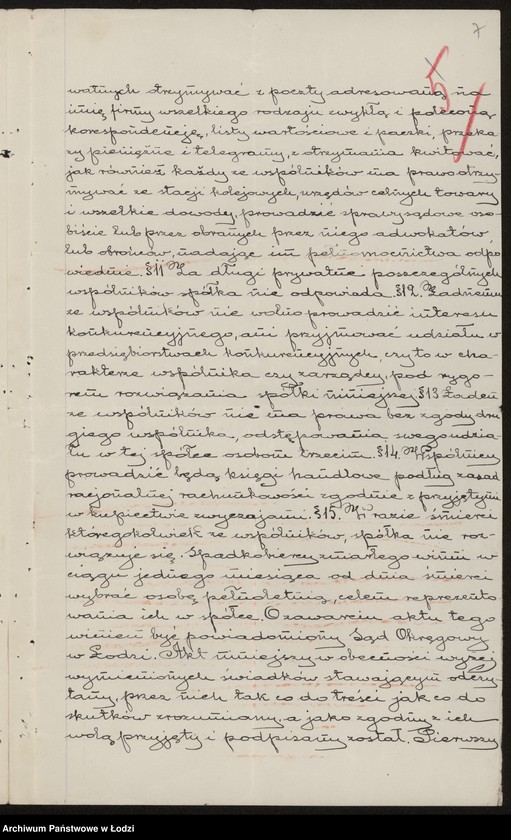 7
5
watnych otrzymywać z poczty adresowaną na
imię firmy wszelkiego rodzaju zwykłą i poleconą
korespondencję, listy wartościowe i paczki, przeka
zy pieniężne i telegramy, z otrzymania kwitować,
jak również każdy ze wspólników ma prawo otrzy
mywać ze stacji kolejowych, urzędów celnych towary
i wszelkie dowody, prowadzić sprawy sądowe oso-
biście lub przez obranych przez niego adwokatów
lub obrońców, nadając im pełnomocnictwa odpo
wiednie. §11 Za długi prywatne poszczególnych
wspólników spółka nie odpowiada. §12. Żadnemu
ze wspólników nie wolno prowadzić interesu
konkurencyjnego, ani przyjmować udziału w
przedsiębiorstwach konkurencyjnych, czy to w cha-
rakterze wspólnika czy zarządcy, pod rygo-
rem rozwiązania spółki niniejszej. §13 Żaden
ze wspólników nie ma prawa bez zgody dru
giego wspólnika, odstępowania swego udzia-
łu w tej spółce osobom trzecim. §14. Wspólnicy
prowadzić będą księgi handlowe podług zasad
racjonalnej rachunkowości zgodnie z przyjętymi
w kupiectwie zwyczajami. §15. W razie śmierci
któregokolwiek ze wspólników, spółka nie roz-
wiązuje się. Spadkobiercy zmarłego winni w
ciągu jednego miesiąca od dnia śmierci
wybrać osobę pełnoletnią, celem reprezento
wania ich w spółce. O zawarciu aktu tego
winien być powiadomiony Sąd Okręgowy
w Łodzi. Akt niniejszy w obecności wyżej
wymienionych świadków stawającym odczy-
tany, przez nich tak co do treści jak co do
skutków zrozumiany, a jako zgodny z ich
wolą przyjęty i podpisany został. Pierwszy
Archiwum Państwowe w Łodzi